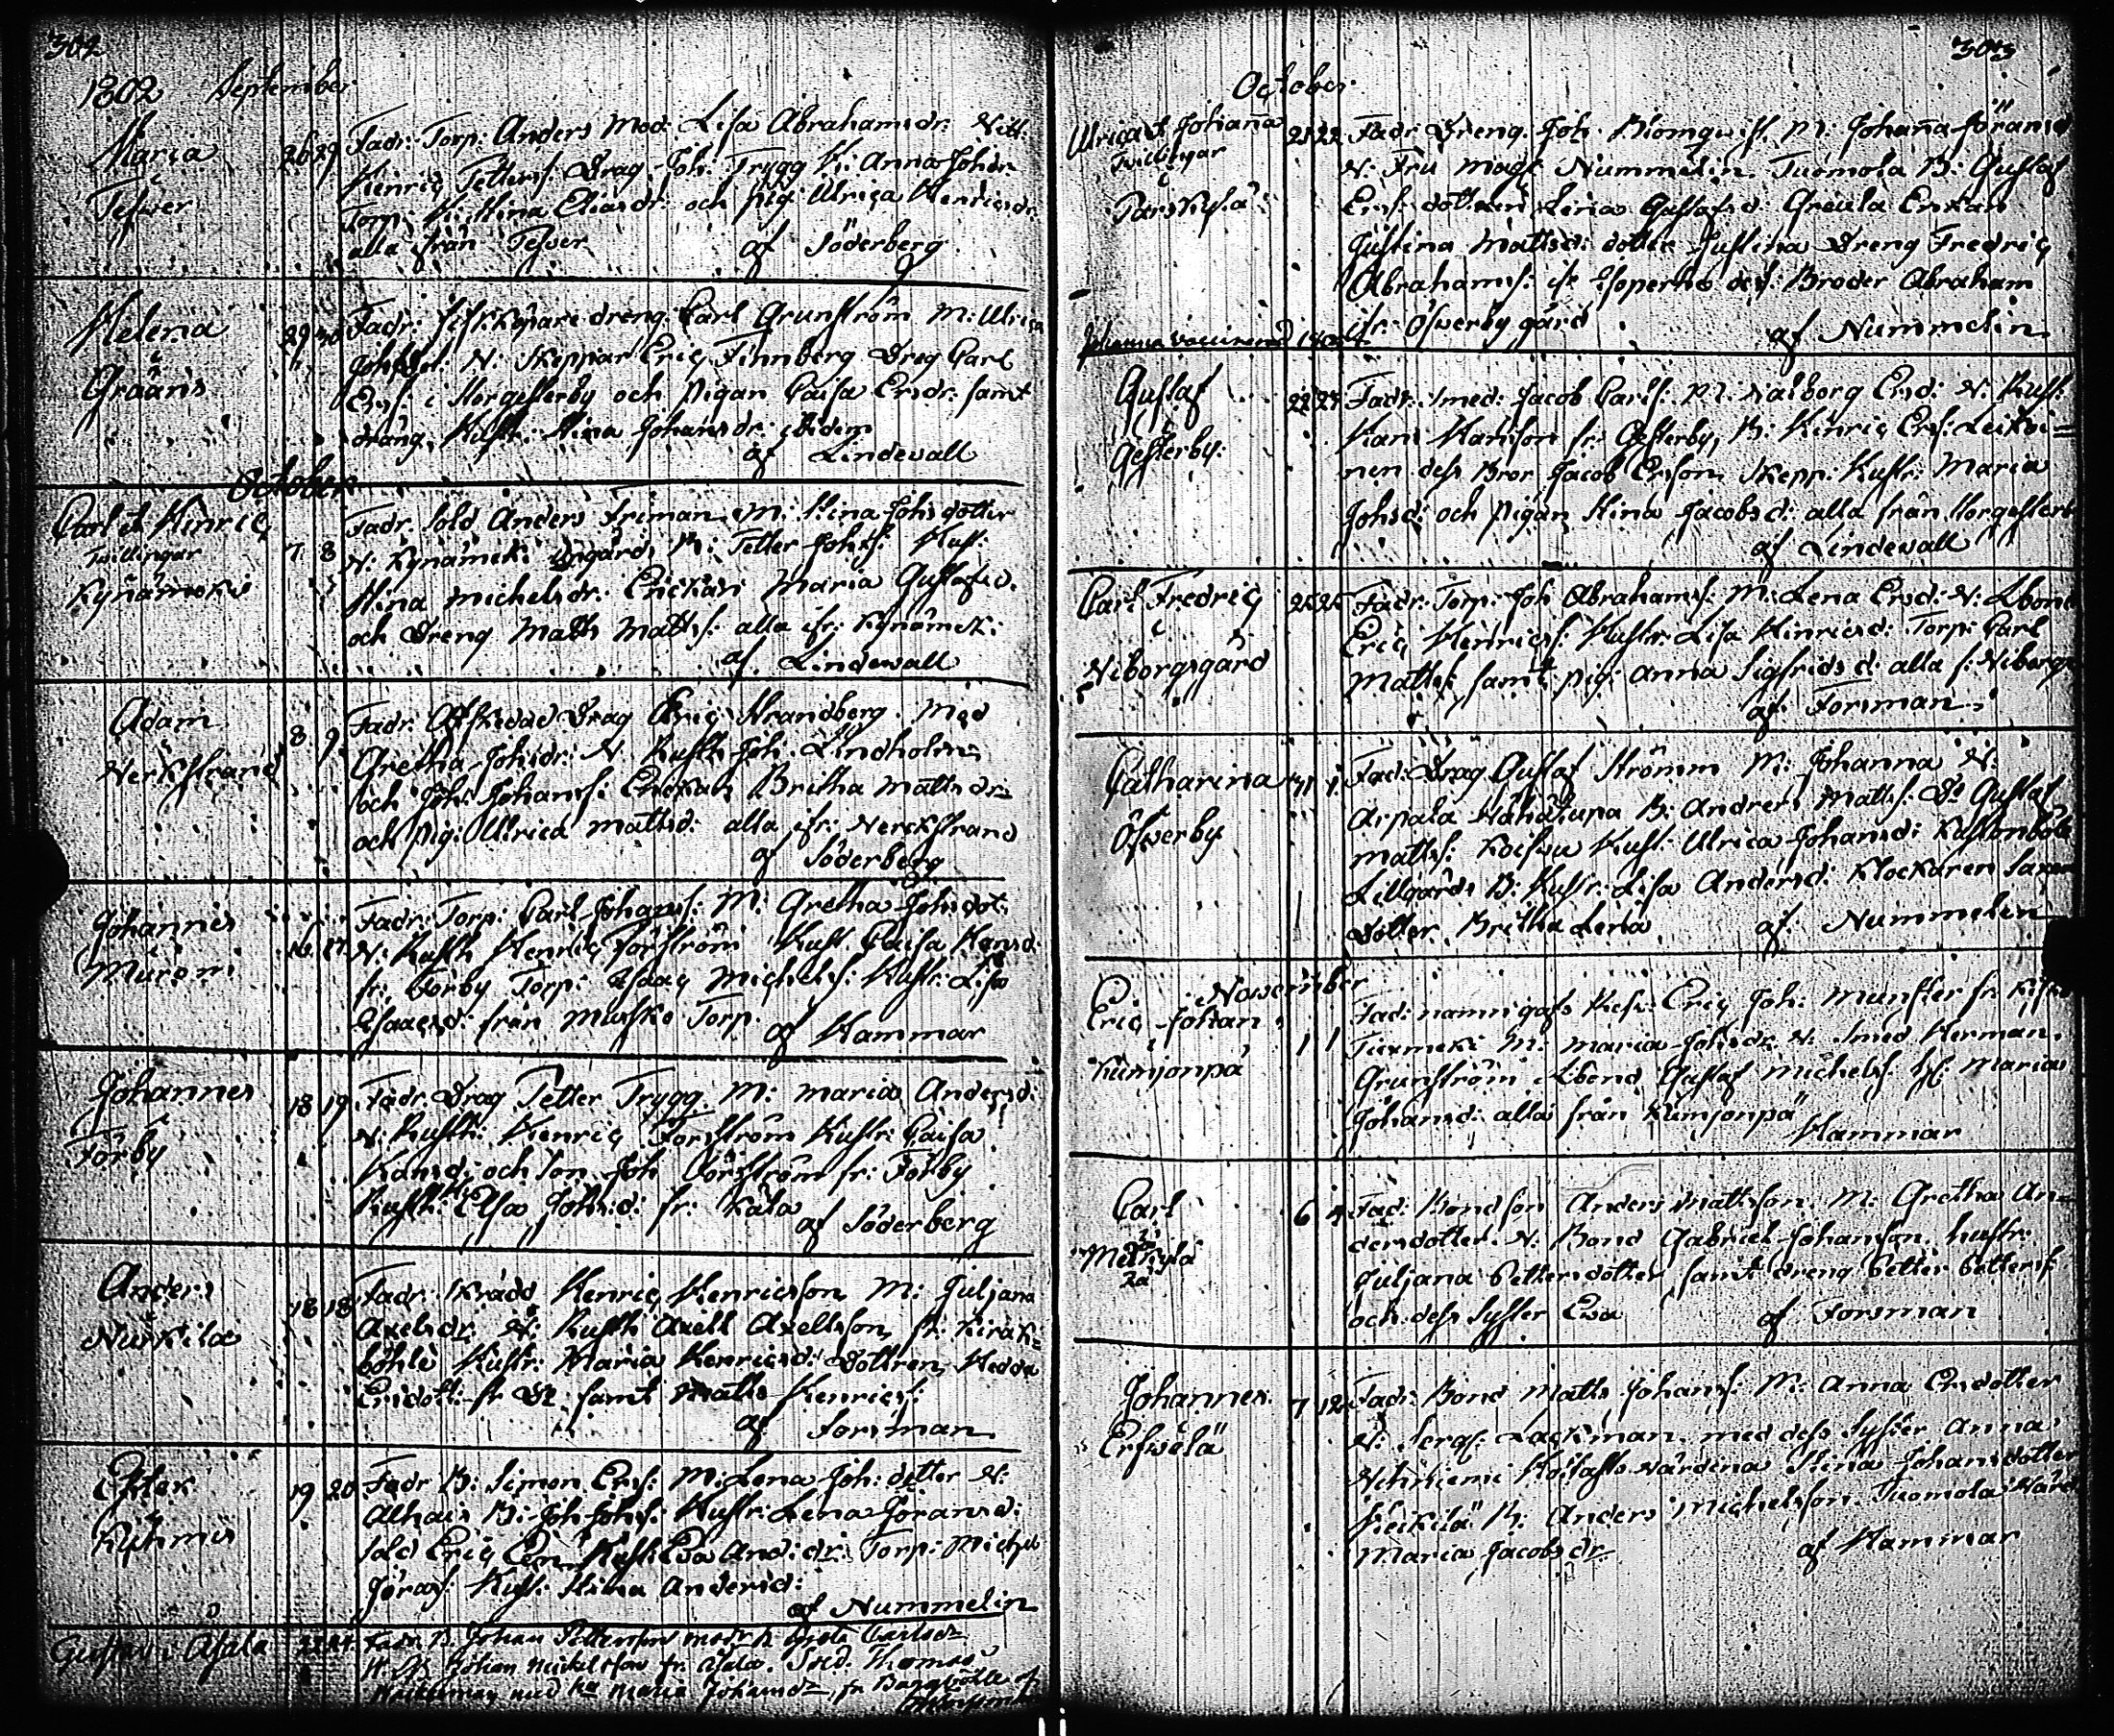 302
1802 September
Maria
i
Tefver
26 29
Fadr: Torp: Anders Mod: Lisa Abrahamsdr: Witt:
Hinric Petters: Drag: Joh: Trygg H: Anna Johsdr
Torp: H: Stina Eliasdr: och pig: Ulrica Henricsdr:
alla från Tefver af Söderberg
Helena
i
Gråäns
29 30
Fadr: Fiskköpare dreng: Carl Grunström M: Ulrica
Johsdot: W: Skeppar Eric Finnberg Drag Carl
Ersf: i Norgesterby och pigan Caisa Ersdr: samt
dräng, Hust: Stina Johansdr: ibidem
af Lindewall
October
Carl & Hinric
Twillingar
Kynämäki
7 8
Fadr. Sold Anders Friman M: Stina Johsdotter
W: Kynämäki B: Petter Johsf: Hust:
Stina Michelsdr: Enckan Maria Gustafsd.
och Dreng Matts Mattsf: alla ifr: Kynämäk:
af Lindewall
Adam
i
Nerkstrand
8 9
Fadr: Afskedad Drag Eric Strandberg Mod
Gretha Johsdr: W: Rusth Joh: Lindholm
och Joh: Johansf: Enckan Britha Mattsdr:
och pig: Ulrica Mattsd: alla ifr: Nerckstrand
af Söderberg
Johannes
i
Murom
16 17
Fadr: Torp: Carl Johansf: M: Gretha Johsdot:
W: Rusth Henric Forsström Hust Caisa Hansd:
fr: Förby Torp: Isaac Michelsf: Hustr: Lisa
Isaacsd: från Musko Torp. af Hammar
Johannes
i
Förby
18 19
Fadr. Drag Petter Trygg M: Maria Andersd:
W: Rusth: Henric Forsström Hustr: Caisa
Hansd: och Son Joh Forsström fr: Förby
Rusth: Hu Elsa Johsd: fr: Kala
af Söderberg
Anders
i
Nurkila
18 18
Fadr: Skrädd Henric Henricsson M: Juljana
Axelsdr: W: Rusth Axell Axellsson fr: Kirak=
böhle Hustr: Maria Henricsd: Dottren Hedda
Ersdott: fr Do samt Matts Henricsf:
af Forsman
Ester
i
Kyhmis
19 20
Fadr B: Simon Ersf: M: Lena Joh: dotter W:
Alhais B: Joh Johsf: Hustr: Lena Göransd:
Sold Eric Hust: Eva And: dr: Torp: Michel
Göransf: Hust: Stina Andersd:
af Nummelin
Gustav i Asala
22 24
Fadr B Johan Pettersson modr h Greta Carlsdr
W B Johan Mickelsson fr Asala. Sold. Thomas
med hu Maria Johansdr fr Bangböhle af
303
October
Ulrica & Johanna
Twillingar
i
Parskylä
21 22
Fadr: Dreng Joh. Blomqvist. M: Johanna Göransd
W: Fru Mag: Nummelin Tuomola B: Gustaf
Ersf: dottren Lena Gustafsd: Greula Enkan
Justina Mattsd: dotter Justina Dreng Fredric
Abrahamsf: dess: Broder Abraham
ifr: Öfwerby gård af Nummelin
Johanna vaccinerad 1804
Gustaf
i
Gesterby:
22 24
Fadr: Smed: Jacob Carlsf: M: Walborg Ersd: W: Rust:
Hans Hansson fr: Gesterby, B: Hinric Ersf: Leikoi=
nen dess Bror Jacob Ersson Skepp: Hustr: Maria
Johsd: och pigan Stina Jacobsd: alla från Norgesterb
af Lindewall
Carl Fredric
i
Wiborgsgård
25 25
Fadr: Torp: Joh Abrahamsf: M: Lena Ersd: W: Lbond
Eric Henricsf: Hustr: Lisa Hinricsd: Torp: Carl
Mattsf: samt pig: Anna Sigfridsd: alla f: Wiborgs
af Forsman
Catharina
i
Öfwerby
31 1
Fad: Drag Gustaf Strömm M: Johanna W:
Arpala B: Anders Mattsf: Do Gustaf
Mattsf: Koifvu Hust: Ulrica Johansd: Kassonböle
Lillgårds B: Hustr: Lisa Andersd: Klockaren
dotter Britha Lena af Nummelin
November
Eric Johan
i
Kumjonpä
1 1
Fad: Eric Joh: Munster fr:
Tiermeki M: Maria Johsdr W: Smed Herman
Grunström Lbond Gustaf Michelsf: H: Maria
Johansd: alla från Kumjonpä
Hammar
Carl
i
Merkylä
6 7
Fad: Bondson Anders Mattsson. M: Gretha An=
dersdotter. W: Bond Gabriel Johansson hustr:
Juljana Pettersdotter samt dreng Petter Pettersf:
och dess Syster Eva af Forsman
Johannes
i
Erfwelä
7 12
Fadr: Bond Matts Johansf: M: Anna Ersdotter
W: Serg: Lackman med dess Syster Anna
Stina Johansdotter
B: Anders Michelsson Tuomola
Maria Jacobsdr af Hammar